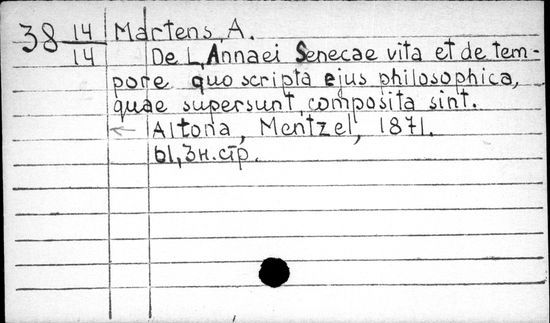 38 14/14 Martens, A.
De L. Annaei Senecae vita et de tem-
pore quo scripta ejus philosophica,
quae supersunt, composita sint.
← Altona, Mentzel, 1871.
61, 3н. стр.